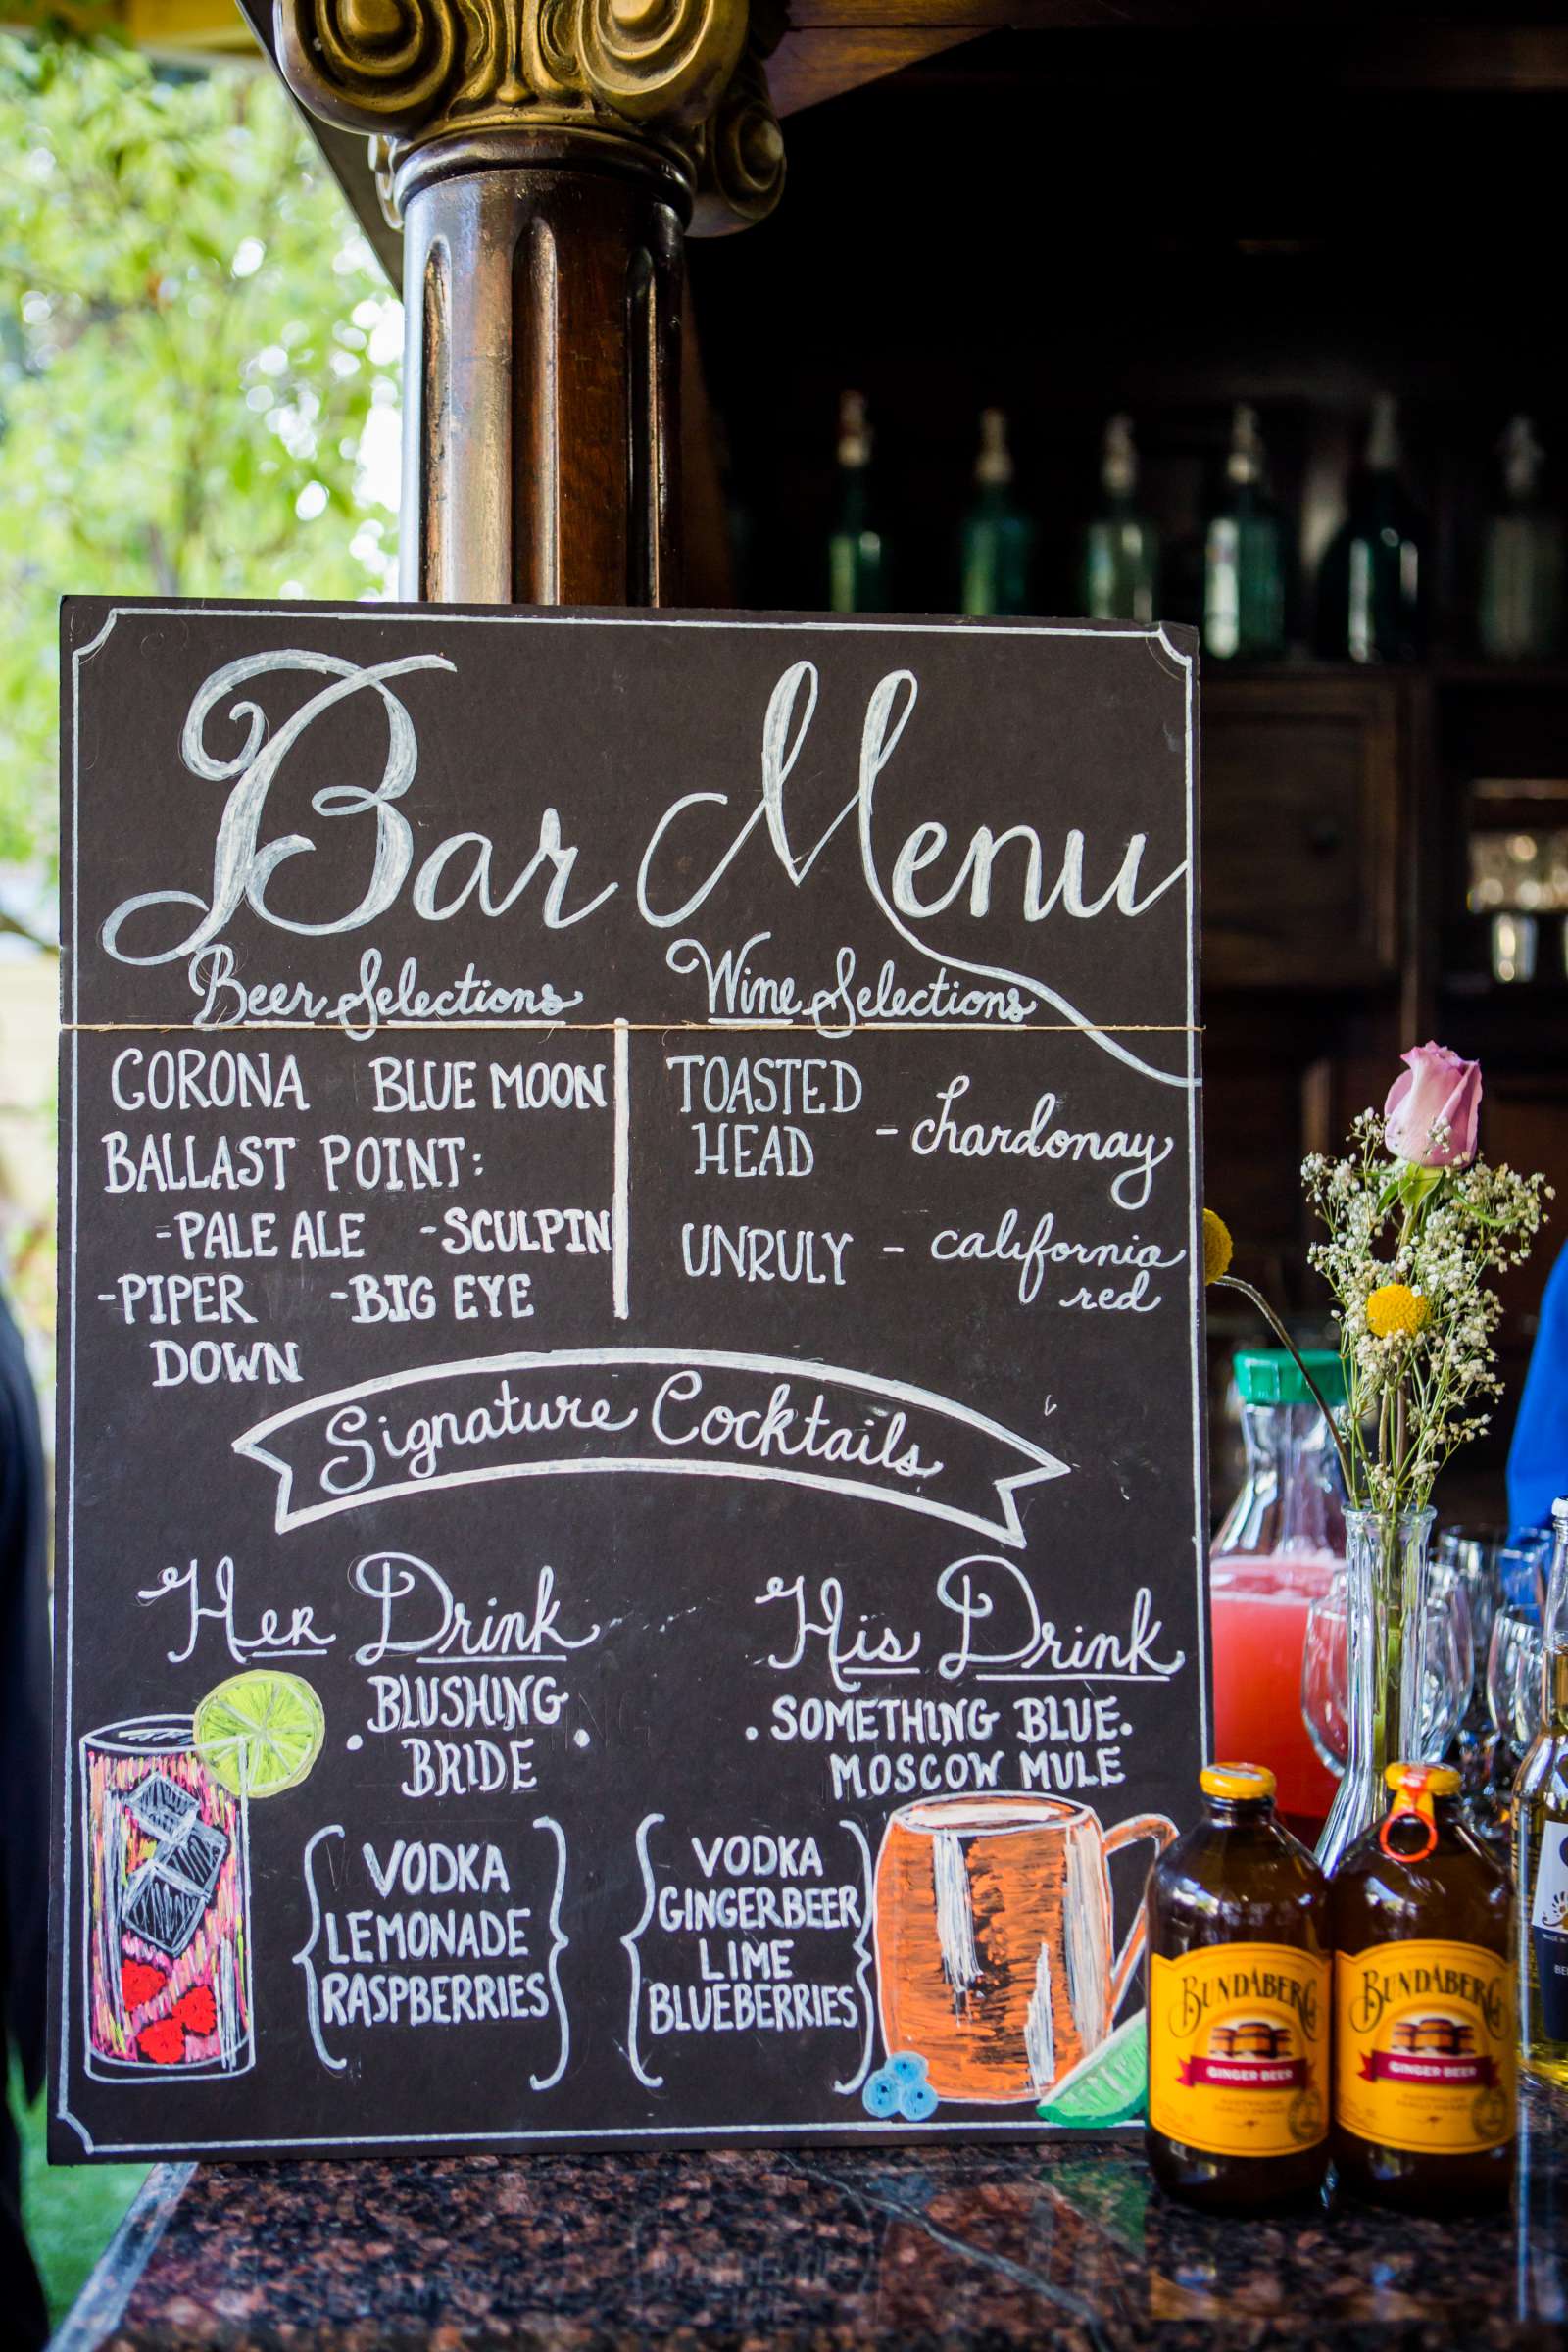 Bar Menu
Beer Selections
CORONA BLUE MOON
BALLAST POINT:
-PALE ALE -SCULPIN
-PIPER -BIG EYE
DOWN
Wine Selections
TOASTED
HEAD - chardonay
UNRULY - california
red
Signature Cocktails
Her Drink
BLUSHING
BRIDE
VODKA
LEMONADE
RASPBERRIES
His Drink
SOMETHING BLUE
MOSCOW MULE
VODKA
GINGERBEER
LIME
BLUEBERRIES
BUNDABERG
GINGER BEER
BUNDABERG
GINGER BEER